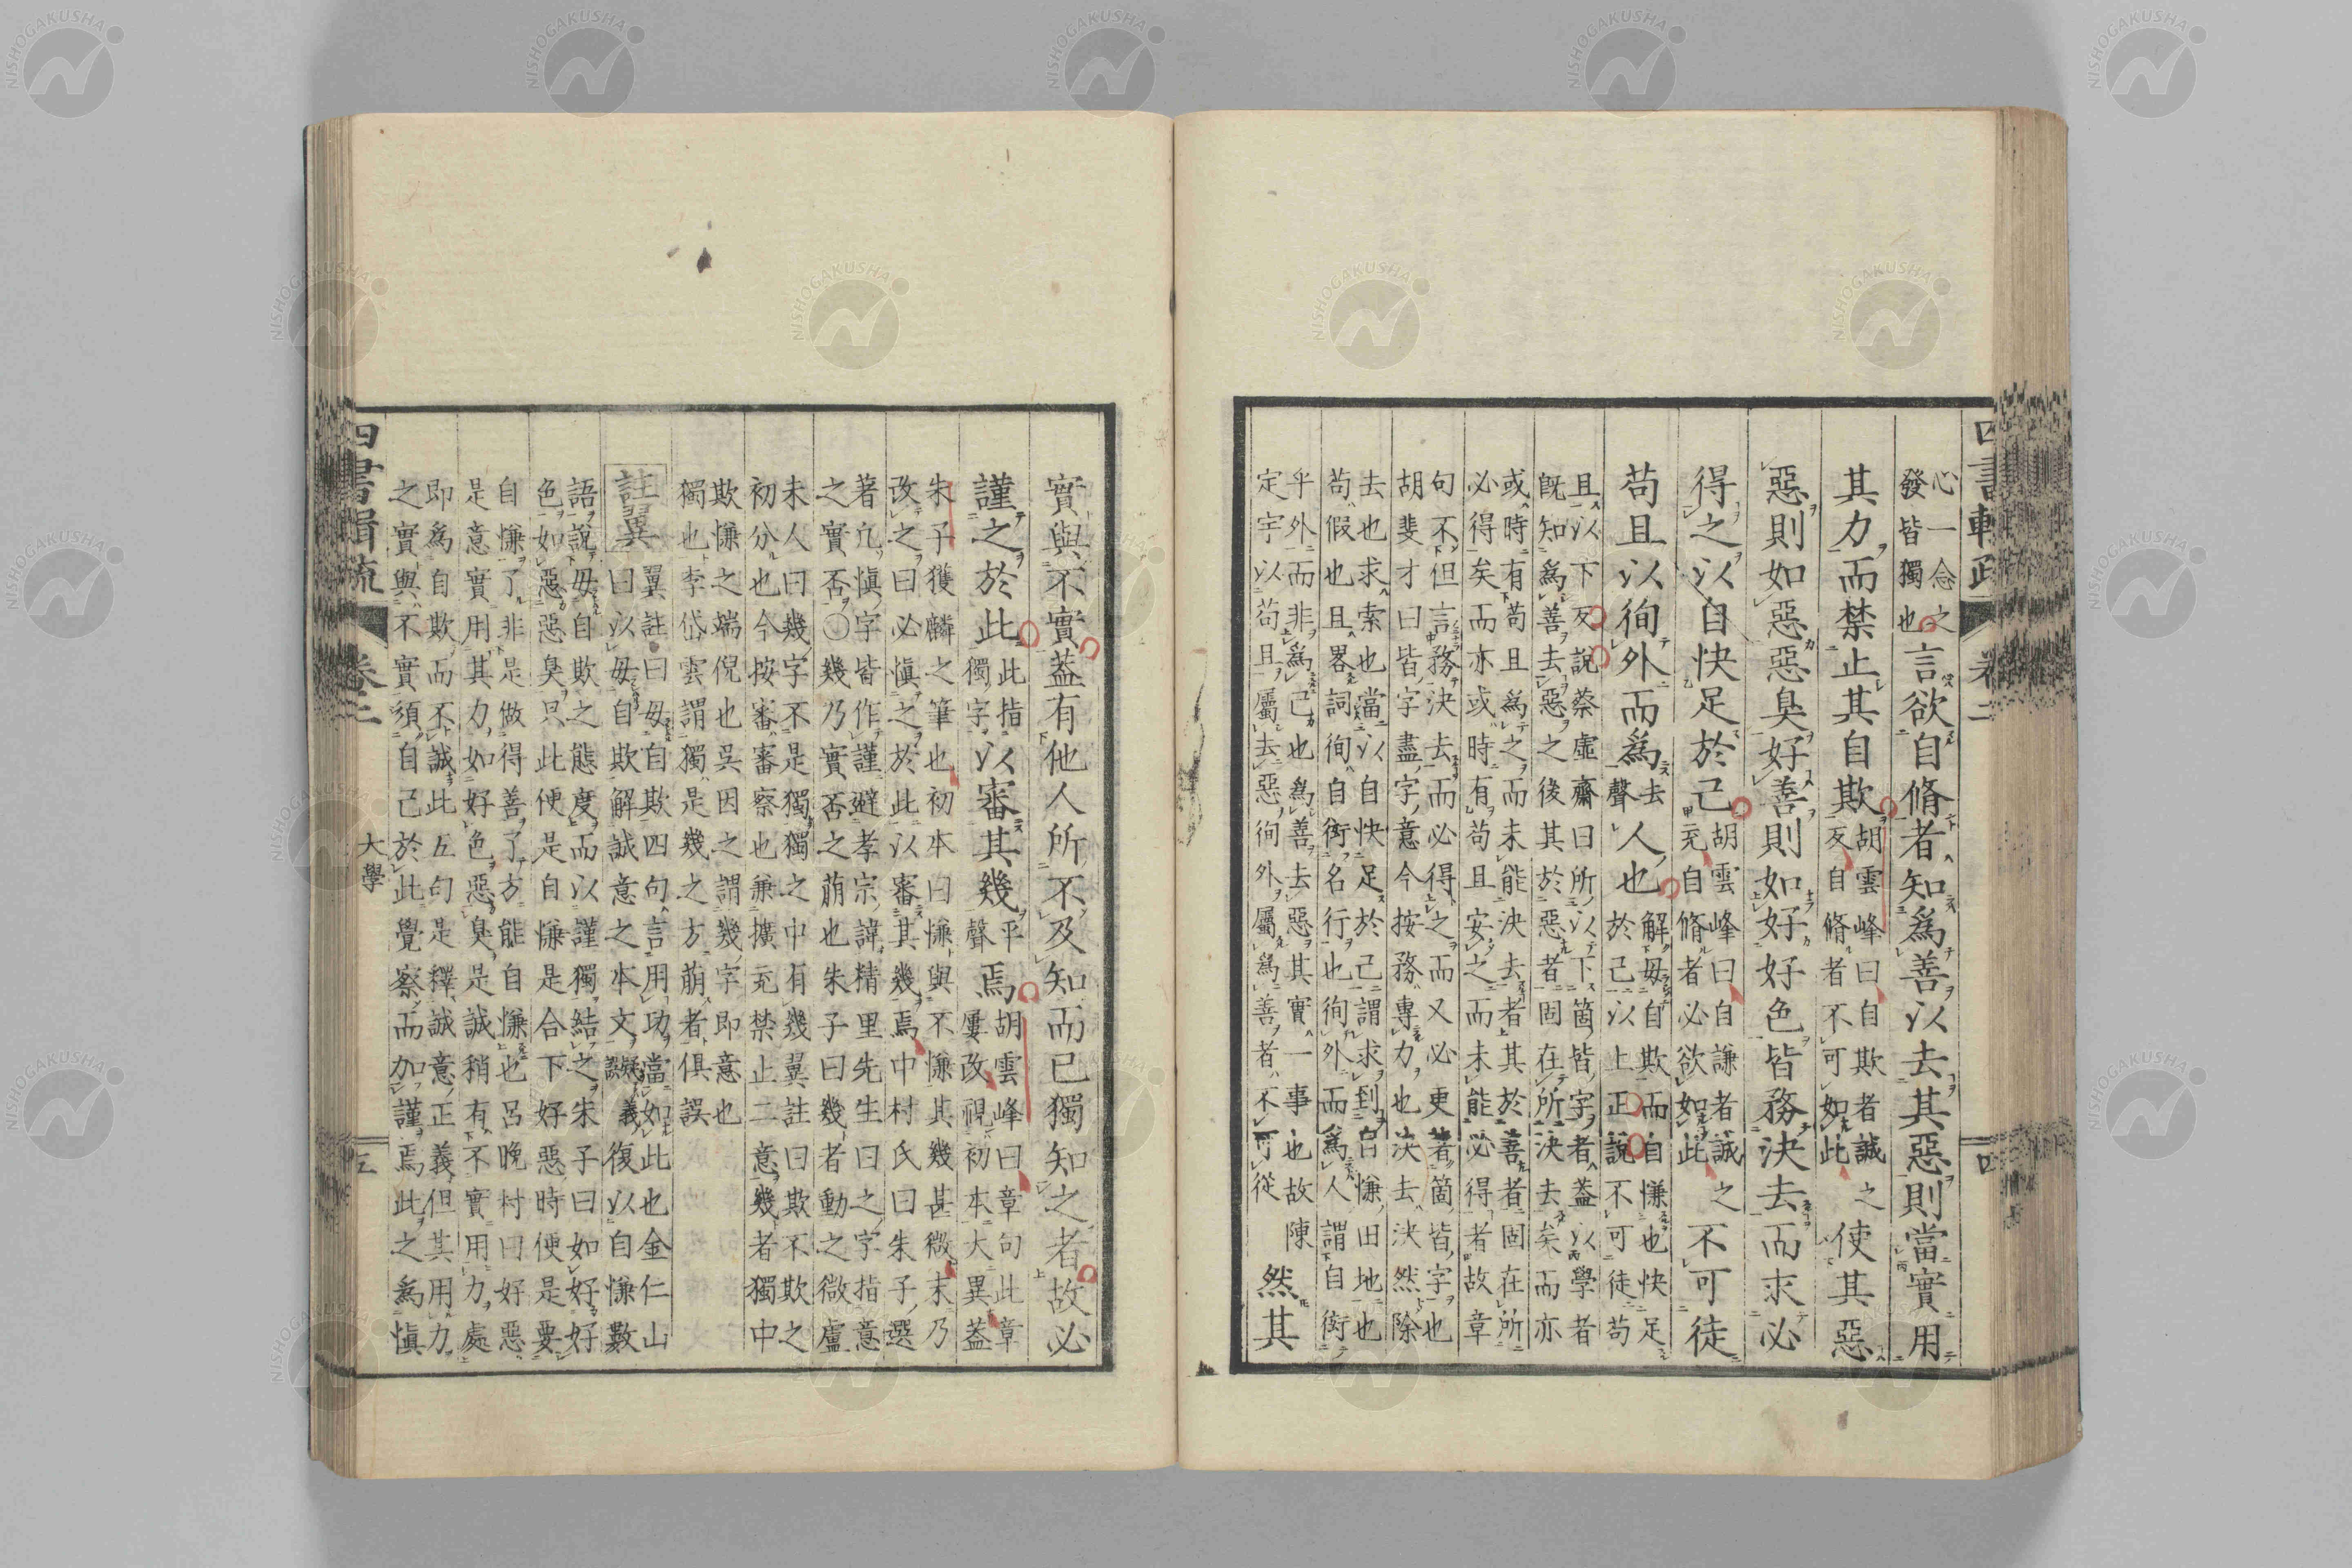 四書輯疏 卷二 四
心一念之
發皆獨也
言欲自脩者知爲善以去其惡則當實用
其力而禁止其自欺
胡雲峰曰自欺者誠之
反自脩者不可如此
使其惡
惡則如惡惡臭好善則如好好色皆務決去而求必
得之以自快足於己
胡雲峰曰自謙者誠之
充自脩者必欲如此
不可徒
苟且以徇外而爲
去
聲
人也
解毋自欺而自慊也快足
於己以上正說不可徒苟
且以下反說蔡虛齋曰所以下箇皆字者蓋以學者
既知爲善去惡之後其於惡者固在所決去矣而亦
或時有苟且爲之而未能決去者其於善者固在所
必得矣而亦或時有苟且安之而未能必得者故章
句不但言務決去而必得之而又必更著箇皆字也
胡斐才曰皆字盡字意今按務專力也決去決然除
去也求索也當以自快足於己謂求到自慊田地也
苟假也且畧詞徇自衒名行也徇外而爲人謂自衒
乎外而非爲己也爲善去惡其實一事也故陳
定宇以苟且屬去惡徇外屬爲善者不可從
然其
實與不實蓋有他人所不及知而己獨知之者故必
謹之於此
此指
獨字
以審其幾
平
聲
焉
胡雲峰曰章句此章
屢改視初本大異蓋
朱子獲麟之筆也初本曰慊與不慊其幾甚微末乃
改之曰必慎之於此以審其幾焉中村氏曰朱子選
著凢慎字皆作謹避孝宗諱精里先生曰之字指意
之實否○幾乃實否之萠也朱子曰幾者動之微盧
未人曰幾字不是獨獨之中有幾翼註曰欺不欺之
初分也今按審審察也兼擴充禁止二意幾者獨中
欺慊之端倪也吳因之謂幾字即意也
獨也李岱雲謂獨是幾之方萠者俱誤
註翼
翼註曰毋自欺四句言用功當如此也金仁山
曰以毋自欺解誠意之本文疑義復以自慊數
語說毋自欺之態度而以謹獨結之朱子曰如好好
色如惡惡臭只此便是自慊是合下好惡時便是要
自慊了非是做得善了方能自慊也呂晚村曰好惡
是意實用其力如好色惡臭是誠稍有不實用力處
即爲自欺而不誠此五句是釋誠意正義但其用力
之實與不實須自己於此覺察而加謹焉此之爲慎
四書輯疏 卷二 大學 五